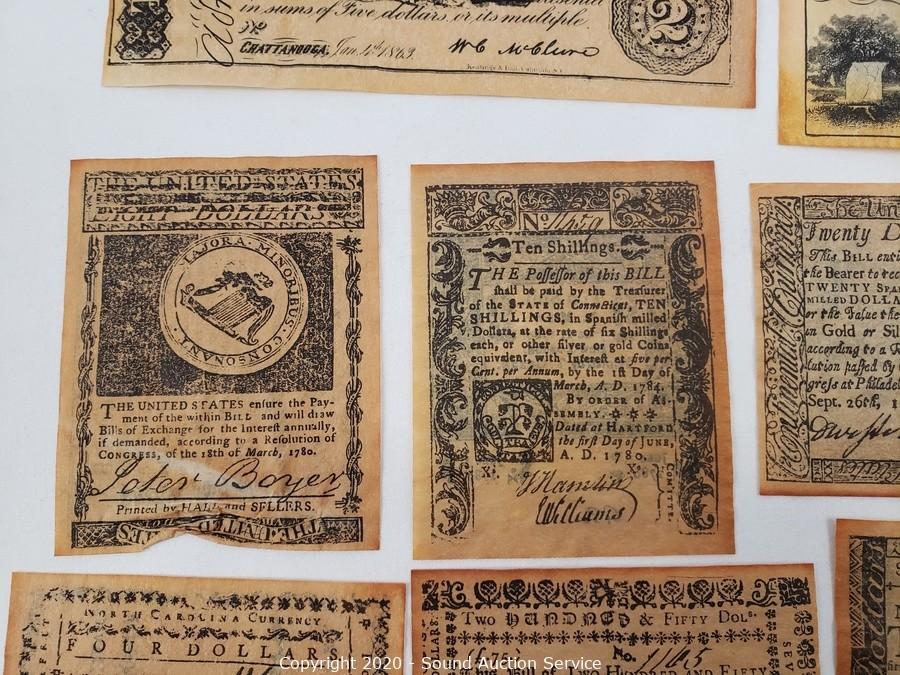 in sums of Five dollars, or its multiple
CHATTANOOGA, Jan. 1863
W C McClure
2
THE UNITED STATES
EIGHT DOLLARS
MAJORA MINORIBUS CONSONANT
THE UNITED STATES enſure the Pay-
ment of the within BILL and will draw
Bills of Exchange for the Intereſt annually,
if demanded, according to a Reſolution of
CONGRESS, of the 18th of March, 1780.
Peter Boyer
Printed by HALL and SELLERS.
THE UNITED STATES
No. 1459
Ten Shillings.
THE Poſſeſſor of this BILL
ſhall be paid by the Treaſurer
of the STATE of Connecticut, TEN
SHILLINGS, in Spaniſh milled
Dollars, at the rate of ſix Shillings
each, or other ſilver or gold Coins
equivalent, with Intereſt at five per
Cent. per Annum, by the 1ſt Day of
March, A. D. 1784.
BY ORDER of AS-
SEMBLY.
Dated at HARTFORD
the firſt Day of JUNE,
A. D. 1780.
X
X
Williams
COMITTE.
The Un
Twenty D
This BILL enti
the Bearer to rec
TWENTY SPA
MILLED DOLLA
or the Value the
in Gold or Sil
according to a R
lution paſſed by
greſs at Philadel
Sept. 26th, 1
NORTH CAROLINA CURRENCY
FOUR DOLLARS
TWO HUNDRED & FIFTY DOLs.
No. 1165
This Bill of TWO HUNDRED AND FIFTY
Copyright 2020 - Sound Auction Service